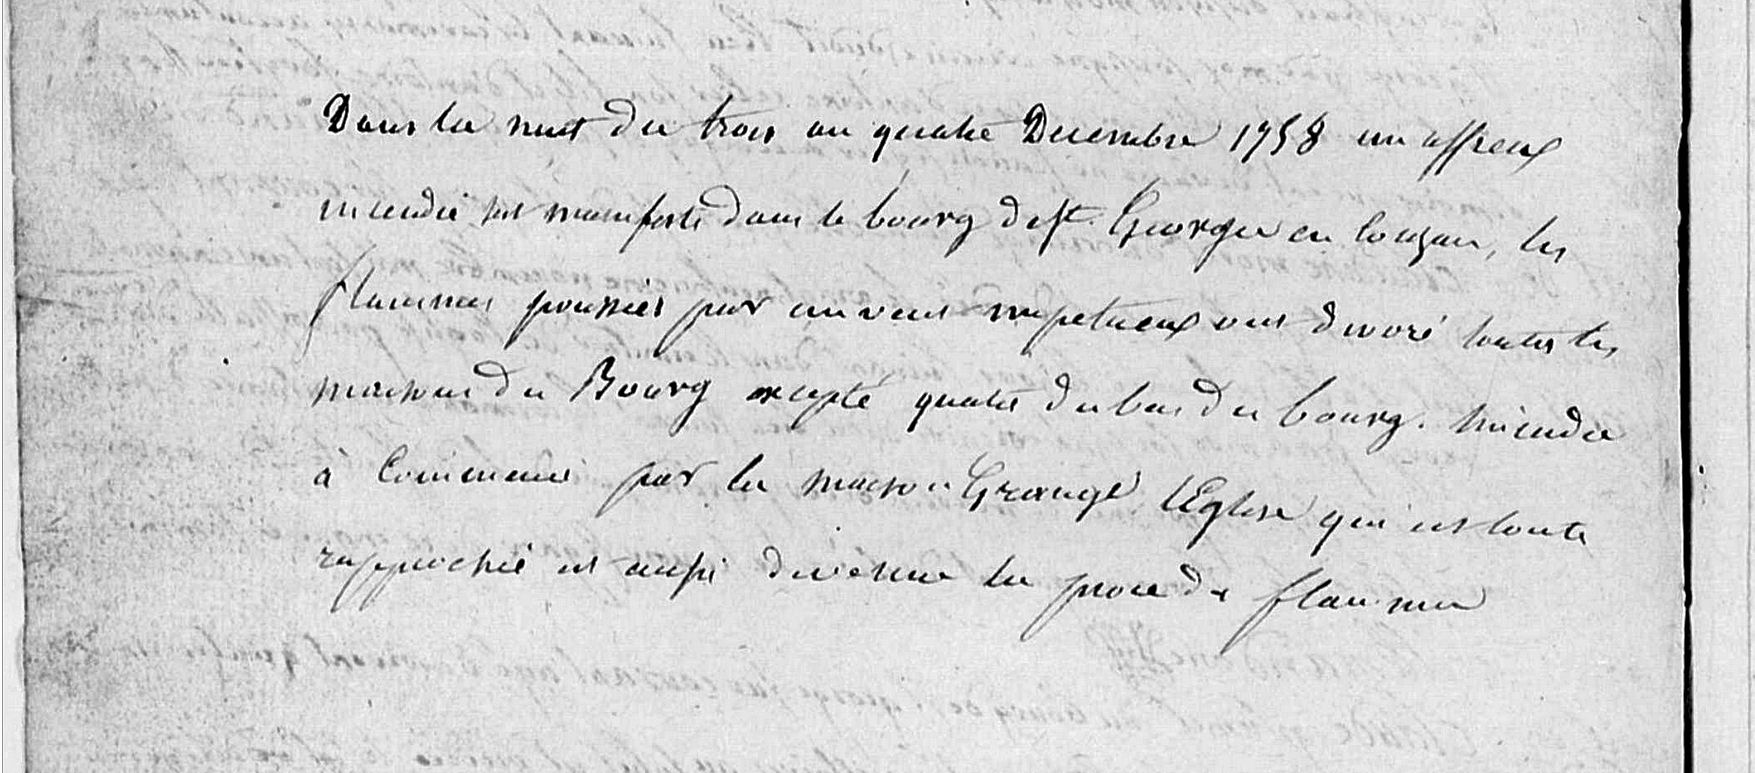 Dans la nuit du trois au quatre Decembre 1758 un affreux
incendie s'est manifesté dans le bourg de St. George en Couzan, les
flammes poussées par un vent impetueux ont devoré toutes les
maisons du Bourg excepté quatre du bas du bourg. L'incendie
à commencé par la maison Grange l'Eglise qui est toute
rapprochée est aussi devenue la proie de flammes